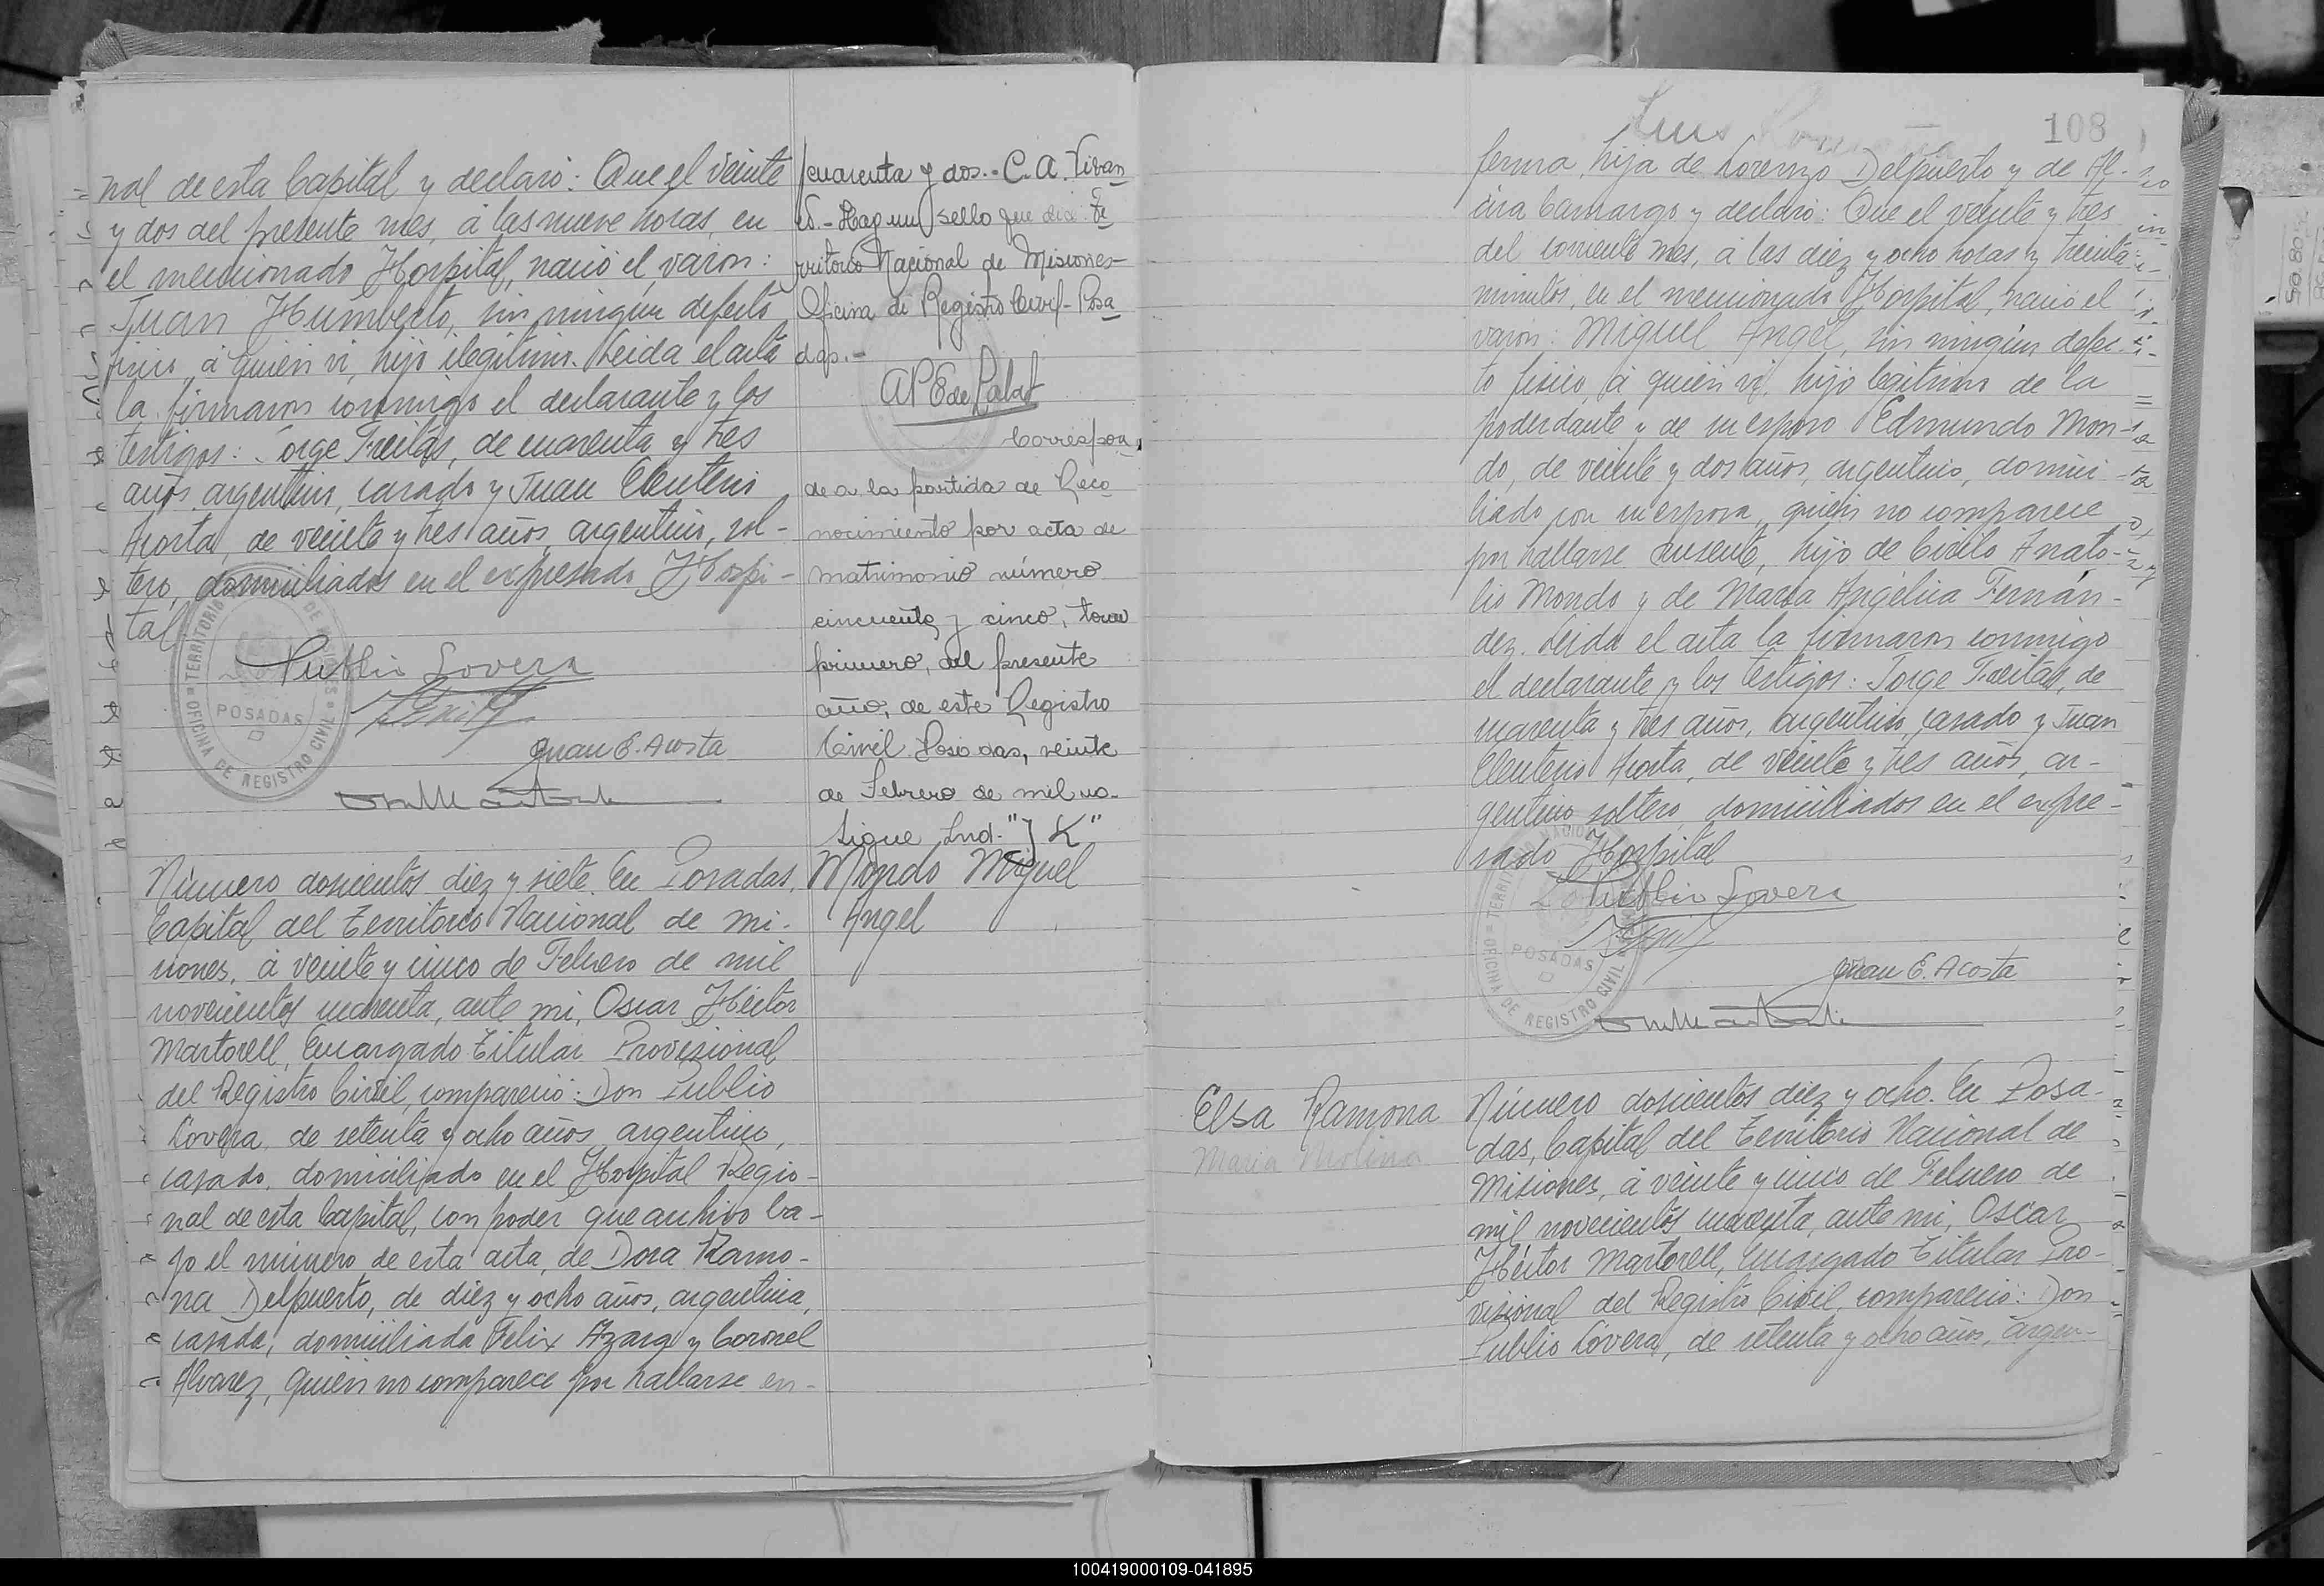 nal de esta Capital y declaró: Que el veinte
y dos del presente mes, á las nueve horas, en
el mencionado Hospital, nació el varon:
Juan Humberto, sin ningún defecto
físico, á quien ví, hijo ilegítimo. Leida el acta
la firmaron conmigo el declarante y los
testigos: Jorge Freitas, de cuarenta y tres
años argentino, casado y Juan Eleuterio
Acosta, de veinte y tres años, argentino, sol-
tero, domiciliados en el expresado Hospi-
tal
Publio Lovera
Juan E. Acosta
TERRITORIO DE MISIONES
POSADAS
OFICINA DE REGISTRO CIVIL
cuarenta y dos.- C. A. Vivan
co.- Hay un sello que dice: Te
rritorio Nacional de Misiones-
Oficina de Registro Civil- Posa
das.-
Correspon
de a la partida de Reco
nocimiento por acta de
matrimonio número
cincuenta y cinco, tomo
primero, del presente
año, de este Registro
Civil. Posadas, veinte
de Febrero de mil no-
Sigue Ind. "J K"
Número doscientos diez y siete. En Posadas,
Capital del Territorio Nacional de Mi-
siones, á veinte y cinco de Febrero de mil
novecientos cuarenta, ante mi, Oscar Héctor
Martorell, Encargado Titular Provisional
del Registro Civil, compareció: Don Publio
Lovera, de setenta y ocho años, argentino,
casado, domiciliado en el Hospital Regio-
nal de esta Capital, con poder que archivo ba-
jo el número de esta acta, de Dora Ramo-
na Delpuerto, de diez y ocho años, argentina,
casada, domiciliada Felix Azara y Coronel
Alvarez, quien no comparece por hallarse en-
Mondo Miguel
Angel
Luis
108
ferma, hija de Lorenzo Delpuerto y de Al-
cira Camargo y declaró: Que el veinte y tres
del corriente mes, á las diez y ocho horas y treinta
minutos, en el mencionado Hospital, nació el
varon: Miguel Angel, sin ningún defec-
to físico, á quien ví, hijo legítimo de la
poderdante y de su esposo Edmundo Mon-
do, de veinte y dos años, argentino, domici-
liado con su esposa, quien no comparece
por hallarse ausente, hijo de Cirilo Anato-
lio Mondo y de María Angélica Fernán-
dez. Leida el acta la firmaron conmigo
el declarante y los testigos: Jorge Freitas, de
cuarenta y tres años, argentino, casado y Juan
Eleuterio Acosta, de veinte y tres años, ar-
gentino soltero, domiciliados en el expre-
sado Hospital
Publio Lovera
Juan E. Acosta
POSADAS
OFICINA DE REGISTRO CIVIL
Elsa Ramona
Maria Molina
Número doscientos diez y ocho. En Posa-
das, Capital del Territorio Nacional de
Misiones, á veinte y cinco de Febrero de
mil novecientos cuarenta, ante mi, Oscar
Héctor Martorell, Encargado Titular Pro-
visional del Registro Civil, compareció: Don
Publio Lovera, de setenta y ocho años, argen-
100419000109-041895